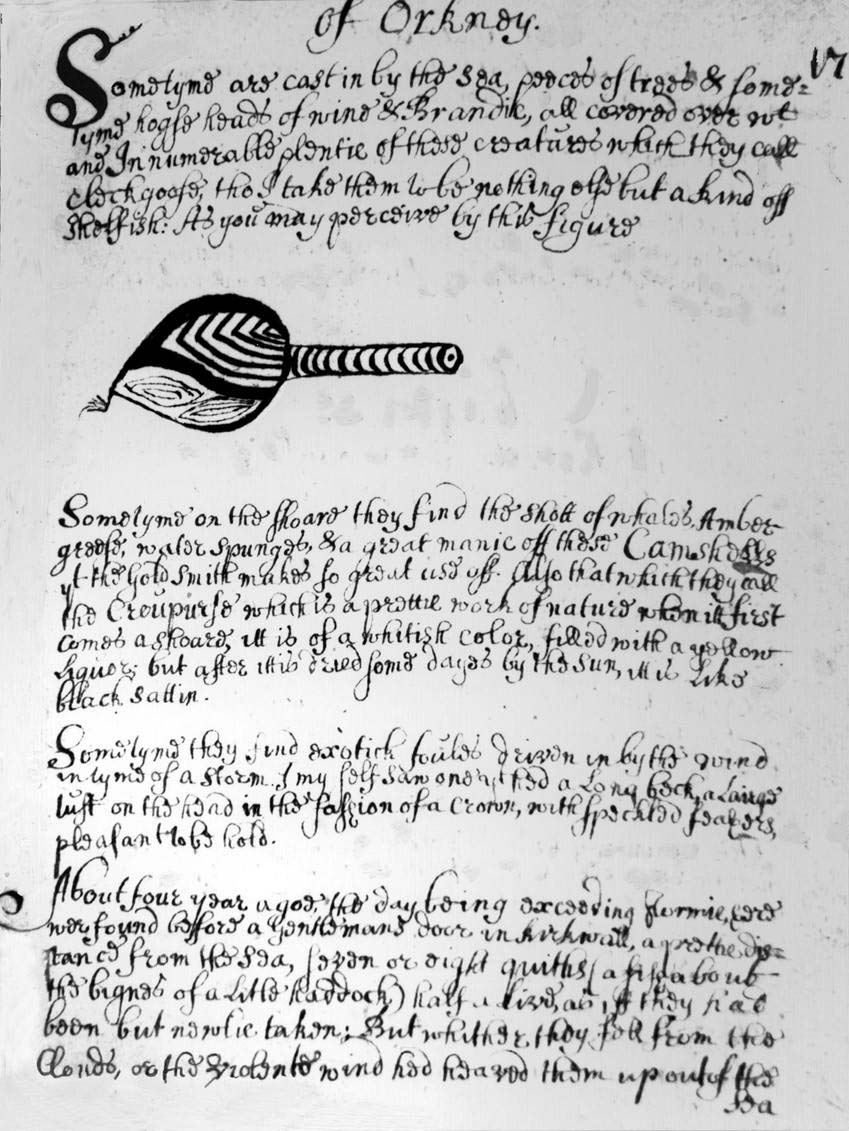 of Orkney.
17
Sometyme are cast in by the sea, peeces of trees & some=
tyme hogse heads of wine & Brandie, all covered over wt
and Innumerable plentie of these creatures which they call
cleckgoose, tho I take them to be nothing else but a kind off
shelfish: As you may perceive by this figure
Sometyme on the shoare they find the shott of whales, Amber
greese, water spunges, & a great manie off these Camshells
yt the Goldsmith makes so great use off. Also that which they call
the Croupurse which is a prettie work of nature when itt first
comes a shoare, itt is of a whitish color, filled with a yellow
liquor; but after itt is dried some dayes by the sun, itt is like
black sattin.
Sometyme they find exotick foules driven in by the wind
in tyme of a storm, I my self saw one yt hed a Long beck, a Large
tuft on the head in the fassion of a Crown, with speckled feathers,
pleasant to be hold.
About four year agoe, the day being exceeding stormie, there
wer found beffore a Gentlemans door in kirkwall, a prettie dis=
tance from the sea, seven or eight quiths (a fish about
the bignes of a Litle haddock) half a live, as iff they had
been but newlie taken; But whither they fell from the
Clouds, or the violente wind hed heaved them up out of the
Sea